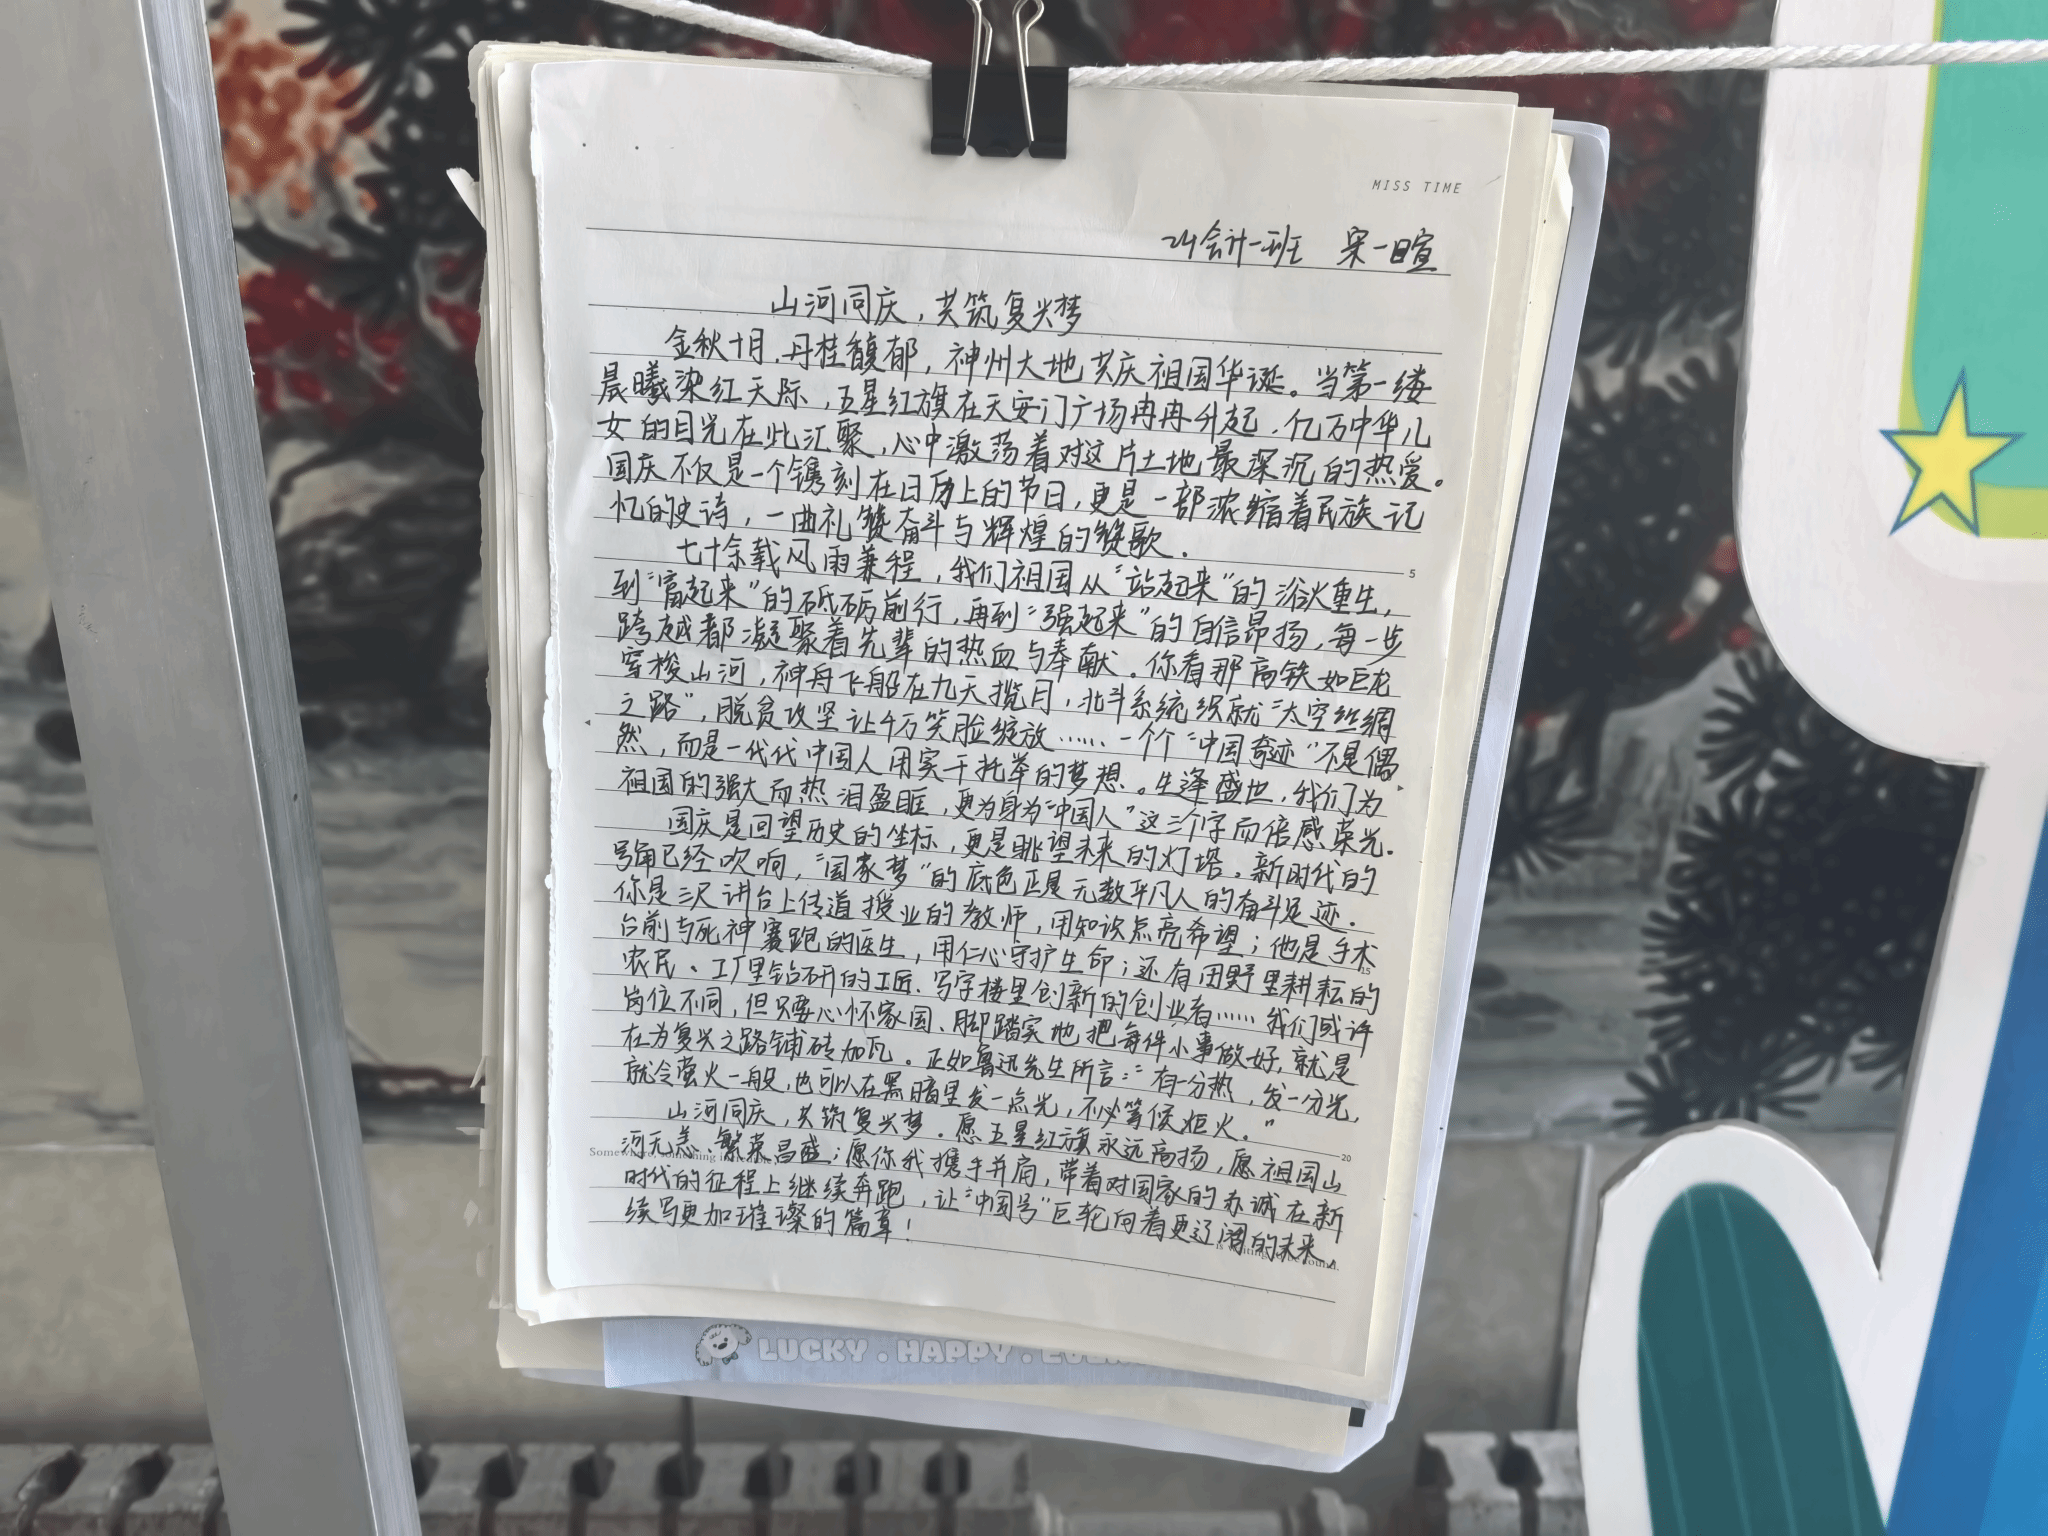 MISS TIME
24会计一班 宋一暄
山河同庆，共筑复兴梦
金秋十月，丹桂馥郁，神州大地共庆祖国华诞。当第一缕
晨曦染红天际，五星红旗在天安门广场冉冉升起，亿万中华儿
女的目光在此汇聚，心中激荡着对这片土地最深沉的热爱。
国庆不仅是一个镌刻在日历上的节日，更是一部浓缩着民族记
忆的史诗，一曲礼赞奋斗与辉煌的赞歌.
七十余载风雨兼程，我们祖国从“站起来”的浴火重生，
5
到“富起来”的砥砺前行，再到“强起来”的自信昂扬，每一步
跨越都凝聚着先辈的热血与奉献.你看那高铁如巨龙
穿梭山河，神舟飞船在九天揽月，北斗系统织就“太空丝绸
之路”，脱贫攻坚让千万笑脸绽放……一个个“中国奇迹”不是偶
然，而是一代代中国人用实干托举的梦想。生逢盛世，我们为
祖国的强大而热泪盈眶，更为身为“中国人”这三个字而倍感荣光.
国庆是回望历史的坐标，更是眺望未来的灯塔。新时代的
号角已经吹响，“国家梦”的底色正是无数平凡人的奋斗足迹.
你是三尺讲台上传道授业的教师，用知识点亮希望；他是手术
15
台前与死神赛跑的医生，用仁心守护生命；还有田野里耕耘的
农民、工厂里钻研的工匠、写字楼里创新的创业者……我们或许
岗位不同，但只要心怀家国、脚踏实地，把每件小事做好，就是
在为复兴之路铺砖加瓦。正如鲁迅先生所言：“有一分热，发一分光，
就令萤火一般，也可以在黑暗里发一点光，不必等候炬火。”
山河同庆，共筑复兴梦.愿五星红旗永远高扬，愿祖国山
20
河无恙、繁荣昌盛；愿你我携手并肩，带着对国家的赤诚在新
Somewhere, something in
时代的征程上继续奔跑，让“中国号”巨轮向着更辽阔的未来，
续写更加璀璨的篇章！
LUCKY . HAPPY .